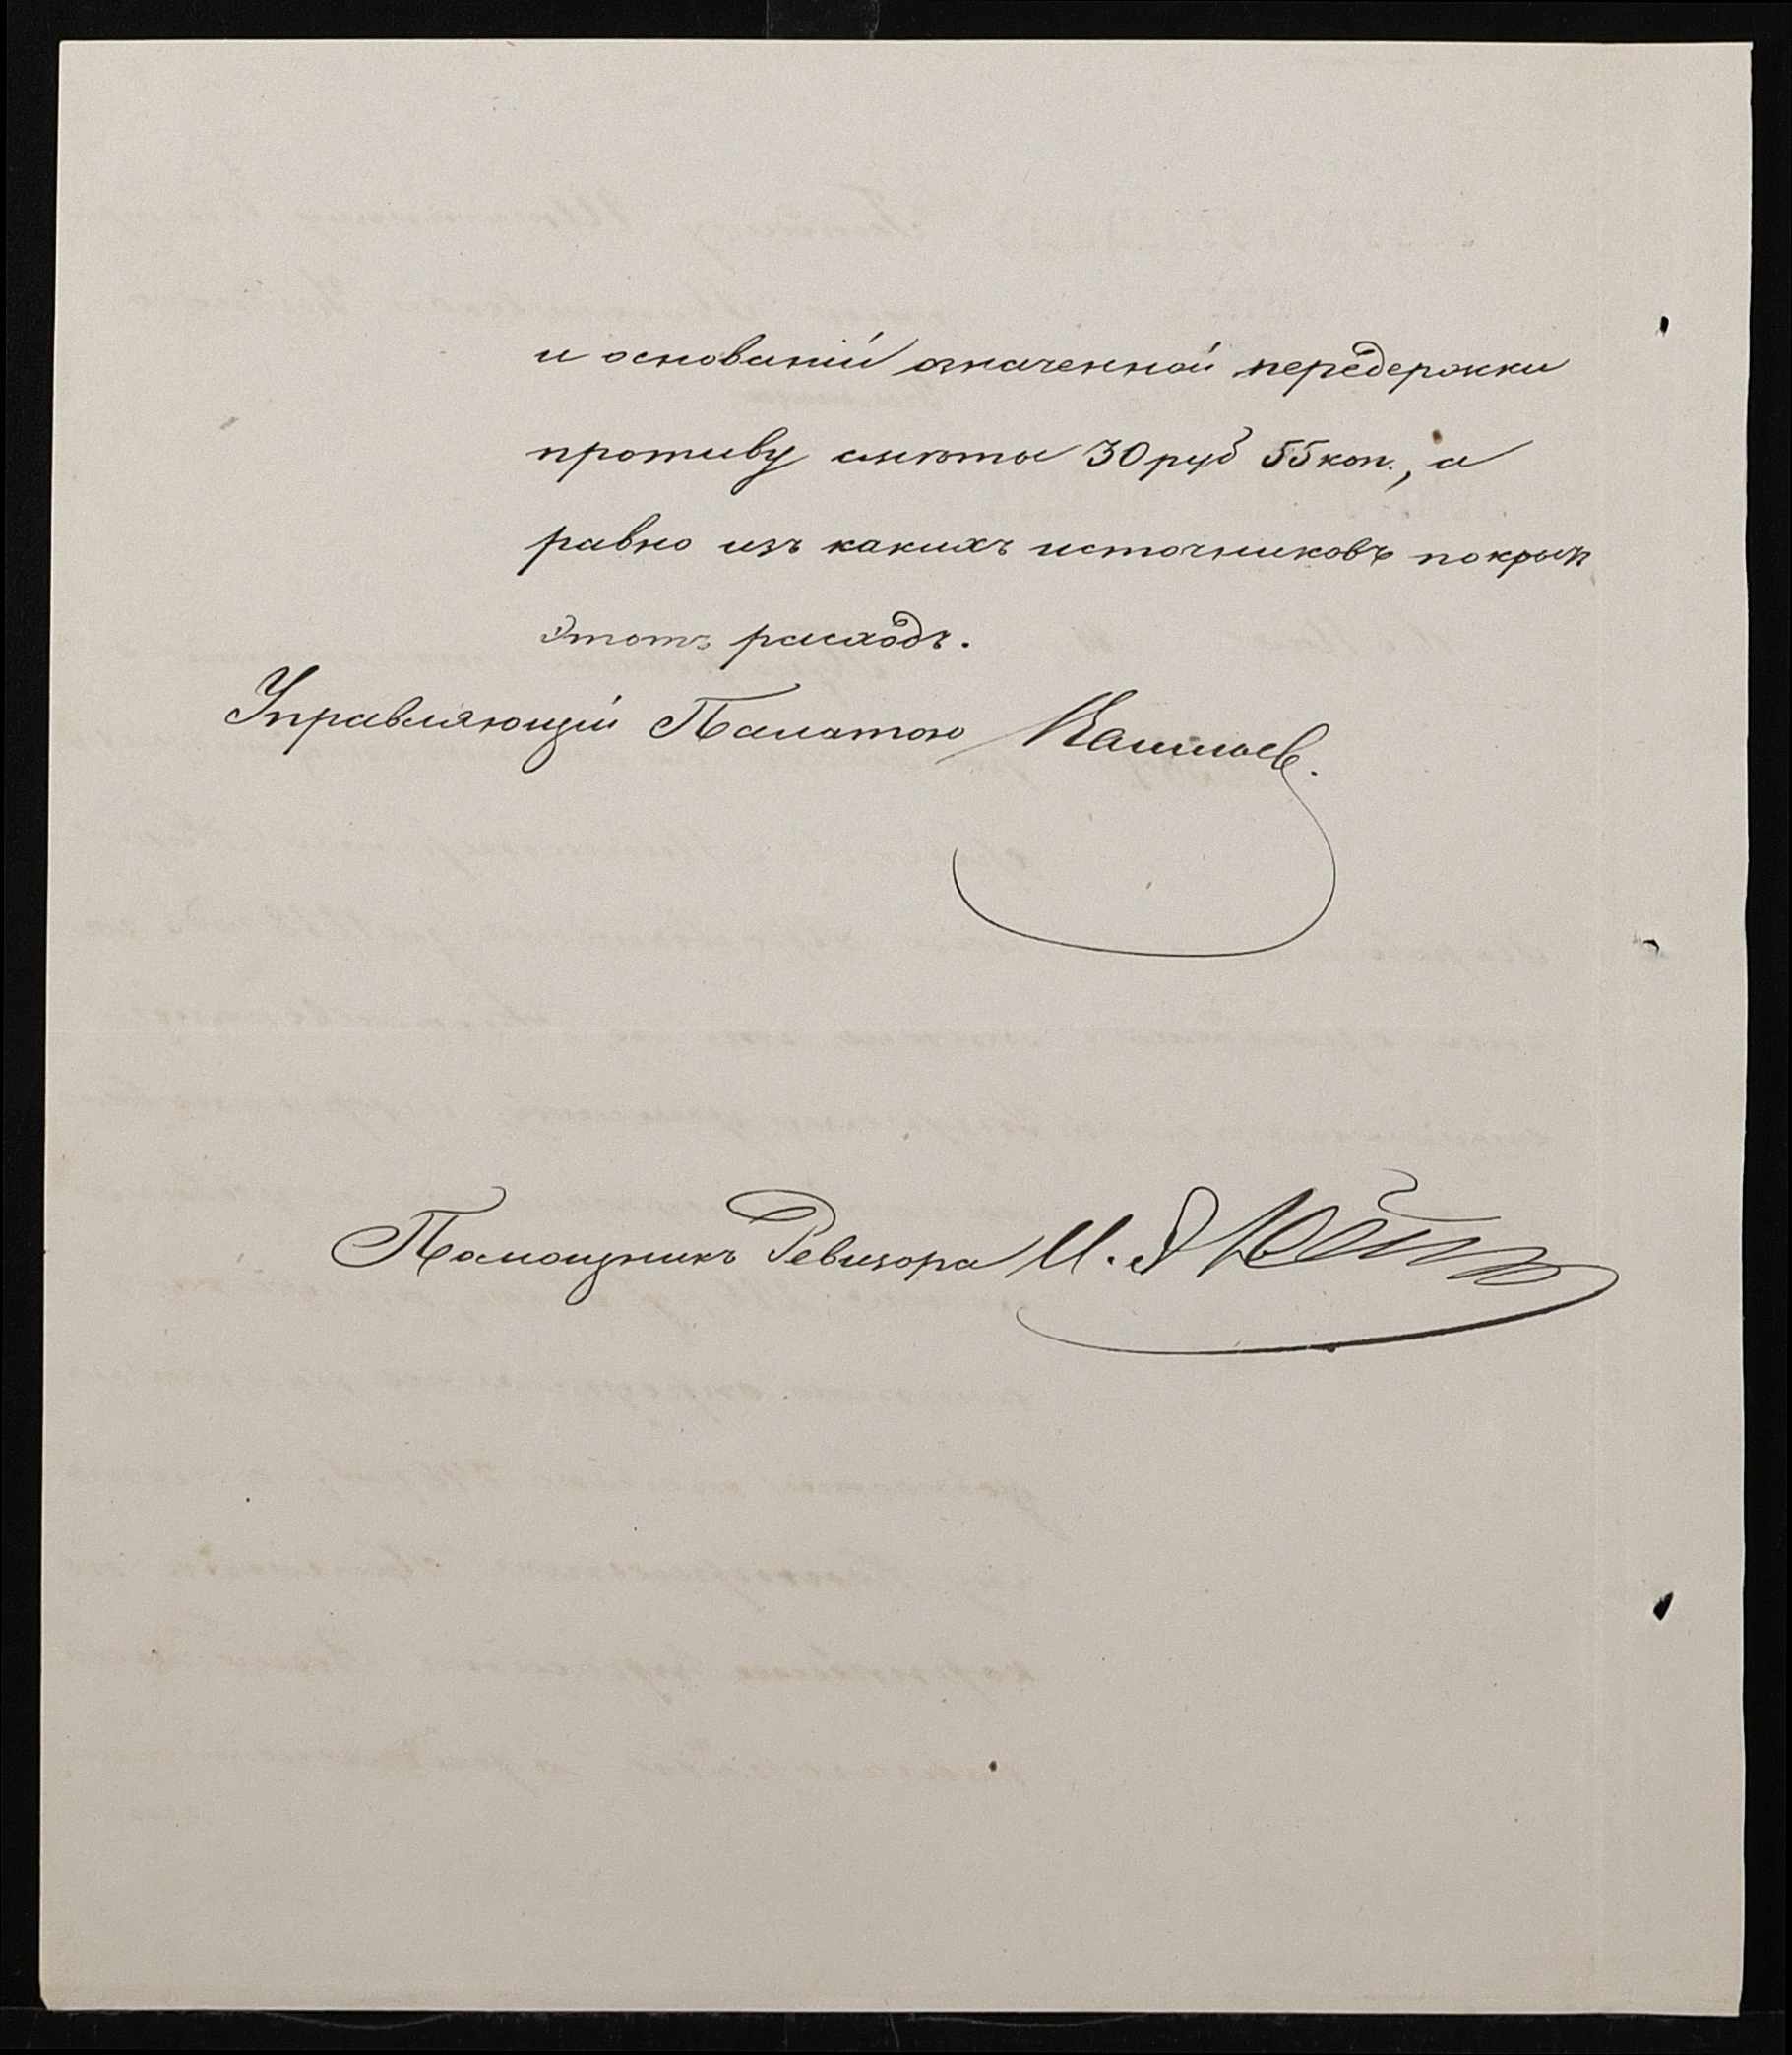 и основаній означенной передержки
противу смѣты 30 руб 55 коп., а
равно изъ какихъ источниковъ покрытъ
этотъ расходъ.
Управляющій Палатою
Помощникъ Ревизора И.